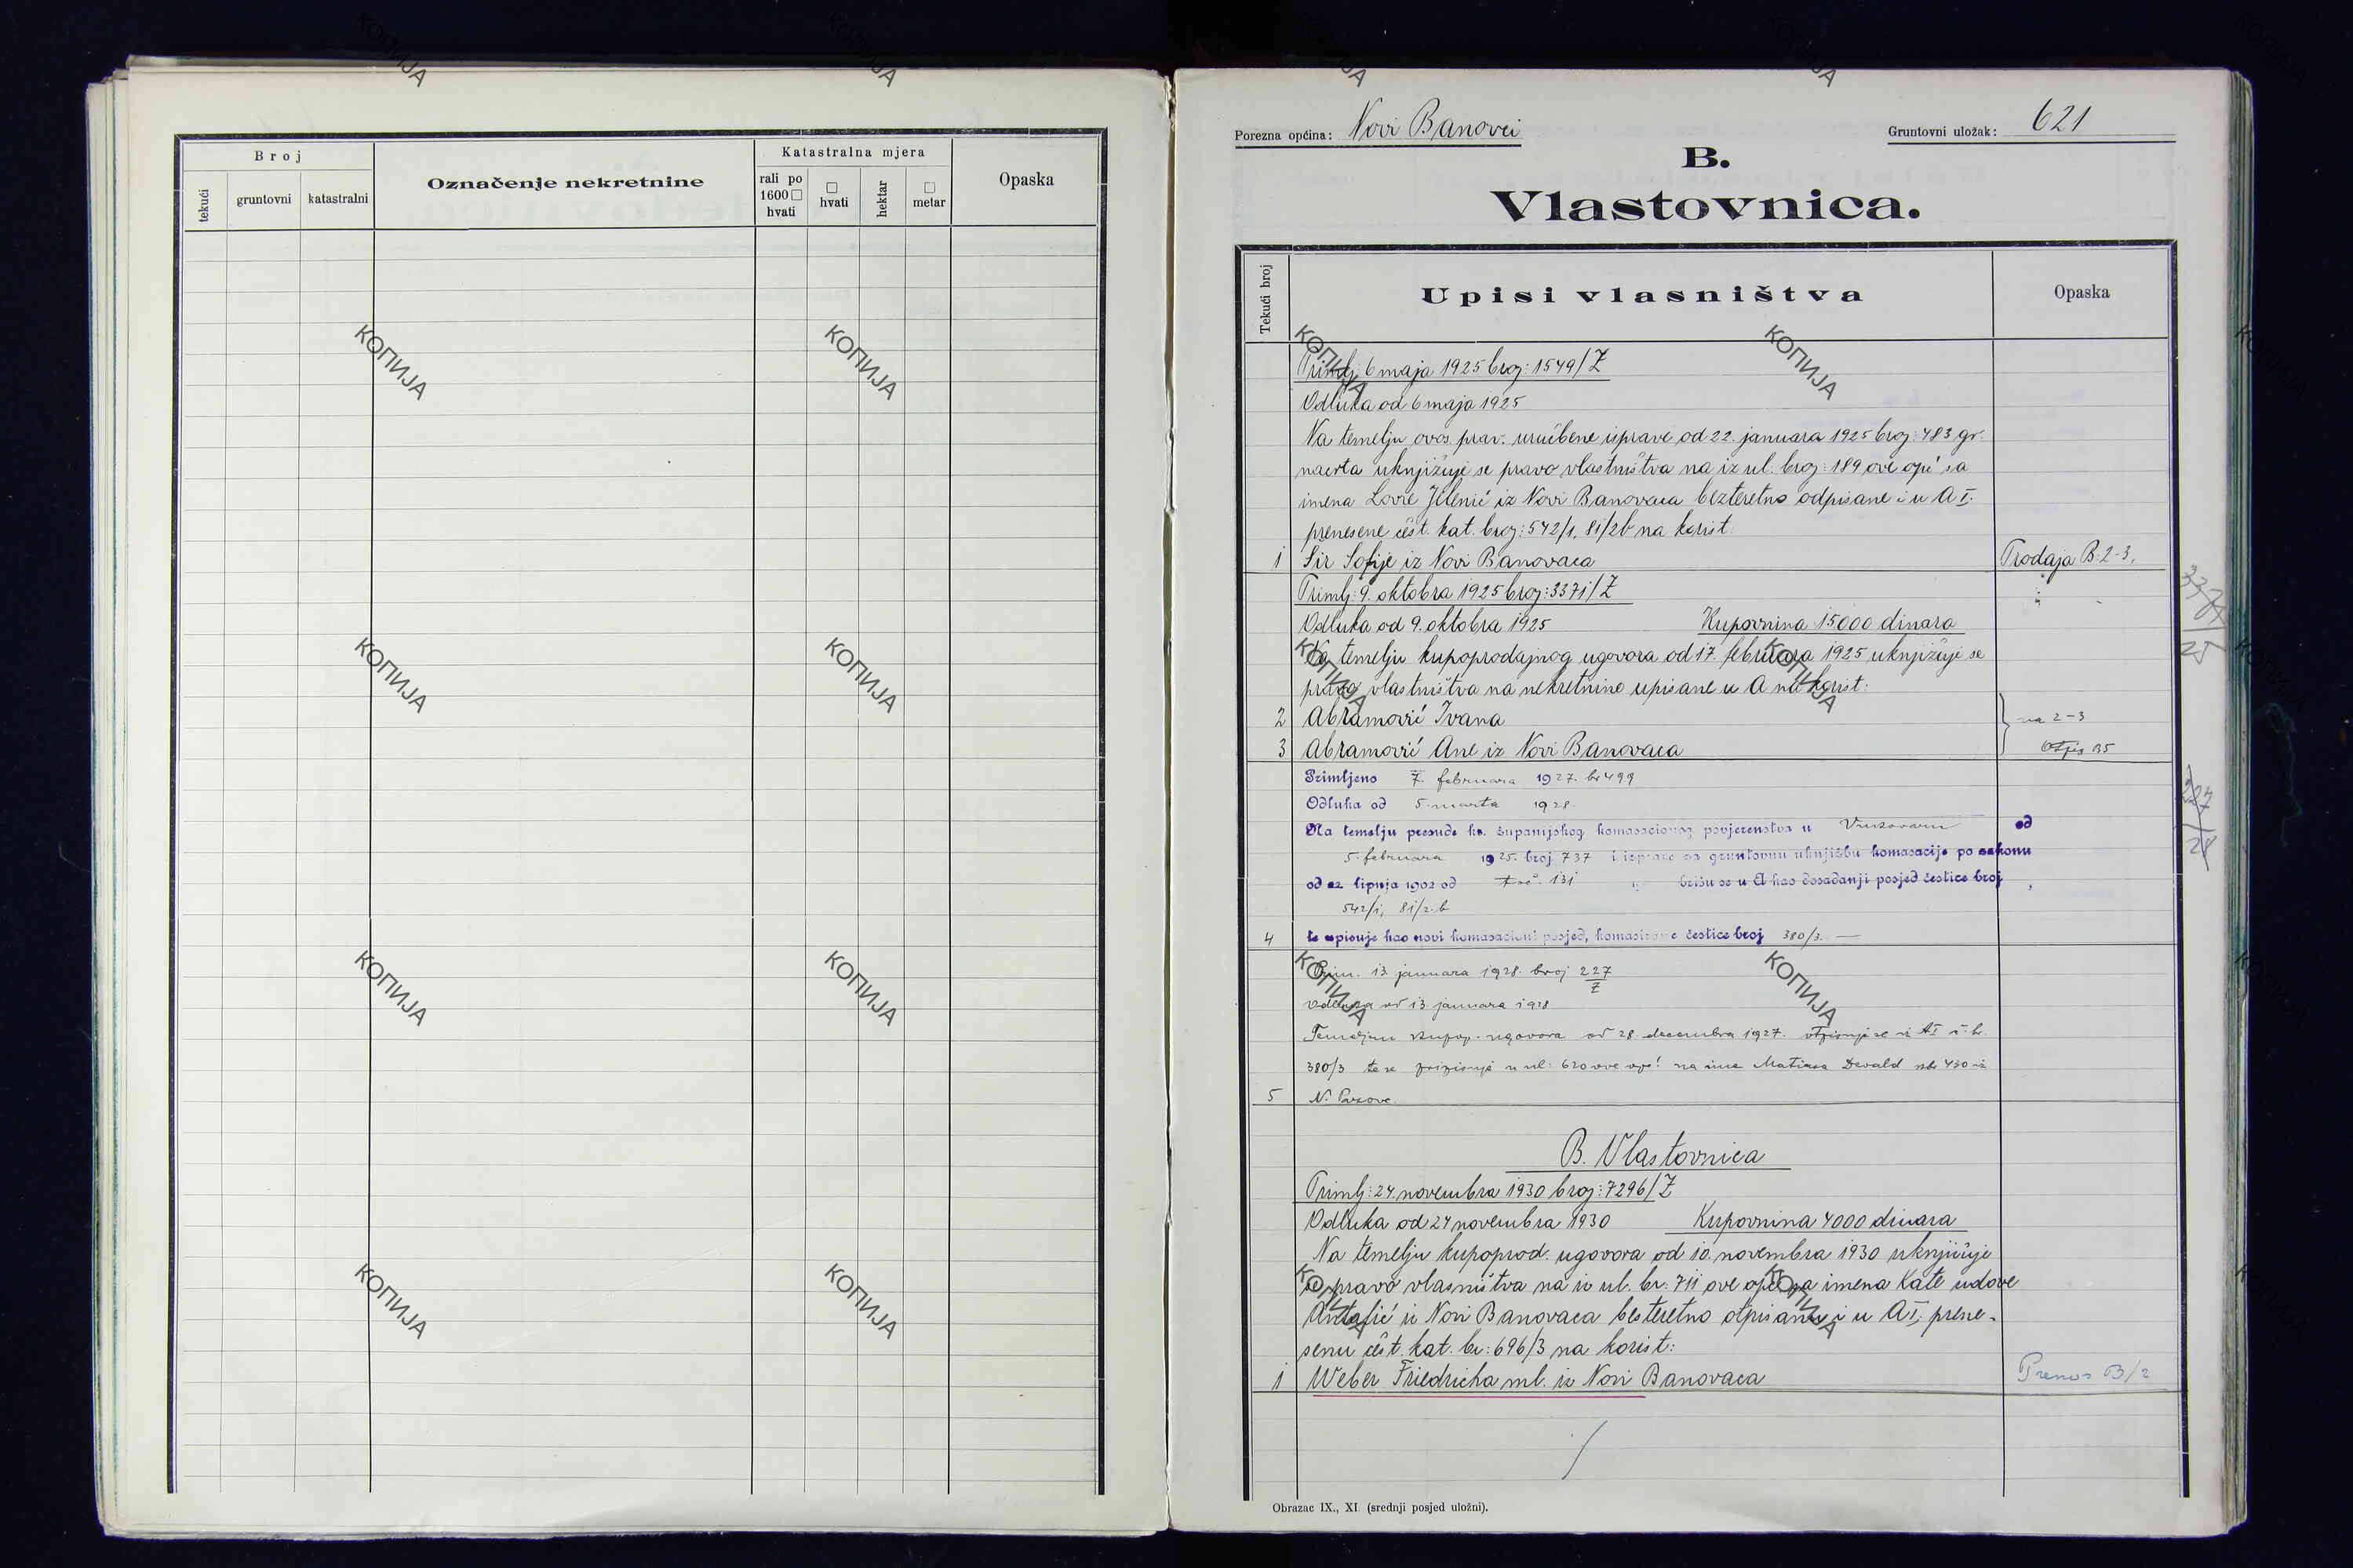 Broj
tekući
gruntovni
katastralni
Označenje nekretnine
Katastralna mjera
rali po 1600 □ hvati
□ hvati
hektar
□ metar
Opaska
Porezna općina: Novi Banovci
Gruntovni uložak: 621
B.
Vlastovnica.
Tekući broj
Upisi vlasništva
Opaska
Primlj: 6 maja 1925 broj: 1549/Z
Odluka od 6 maja 1925
Na temelju ovos. prav. uručbene isprave od 22. januara 1925 broj: 483 gr.
nacrta uknjižuje se pravo vlastništva na iz ul. broj: 189 ove opć sa
imena Lovre Jelenić iz Novi Banovaca bezteretno odpisane i u A I.
prenesene čest. kat. broj: 542/1, 81/2b na korist
1 Sir Sofije iz Novi Banovaca
Prodaja B: 2-3,
Primlj: 9. oktobra 1925 broj: 3371/Z
Odluka od 9. oktobra 1925 Kupovnina 15000 dinara
Na temelju kupoprodajnog ugovora od 17 februara 1925 uknjižuje se
pravo vlastništva na nekretnine upisane u A na korist:
2 Abramović Ivana
3 Abramović Ane iz Novi Banovaca
na 2-3
Otpis B5
Primljeno 7. februara 1927. br 499
Odluka od 5. marta 1928.
Na temelju presude kr. županijskog komasacionog povjerenstva u Vukovaru od
5. februara 1925. broj 737 i isprave za gruntovnu uknjižbu komasacije po zakonu
od 22 lipnja 1902 od 131 brišu se u A kao dosadanji posjed čestice broj
542/1, 81/2.b
4 te upisuje kao novi komasacioni posjed, komasirane čestice broj 380/3. —
Prim. 13 januara 1928. broj 227/Z
Odluka od 13 januara 1928
Temeljem kupop. ugovora od 28 decembra 1927. otpisuje se iz AI č. br.
380/3 te se pripisuje u ul: 620 ove opć. na ime Matiasa Dewald kbr 430 iz
5 N. Pazove.
B. Vlastovnica
Primlj: 24. novembra 1930 broj: 7296/Z
Odluka od 24 novembra 1930 Kupovnina 4000 dinara
Na temelju kupoprod. ugovora od 10. novembra 1930 uknjižuje
se pravo vlasništva na iz ul. br. 711 ove opć sa imena Kate udove
iz Novi Banovaca besteretno otpisanu i u A I, prene-
senu čest. kat. br: 696/3 na korist:
1 Weber Friedricha ml. iz Novi Banovaca
Prenos B/2
Obrazac IX., XI. (srednji posjed uložni).
КОПИЈА